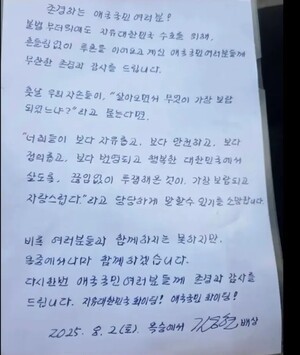 존경하는 애국국민 여러분!
불법 무더위에도 자유대한민국 수호를 위해,
흔들림 없이 투혼을 이어오고 계신 애국국민여러분들께
무한한 존경과 감사를 드립니다.
훗날 우리 자손들이, "살아오면서 무엇이 가장 보람
되었느냐?"라고 묻는다면,
"너희들이 보다 자유롭고, 보다 안전하고, 보다
정의롭고, 보다 번영되고 행복한 대한민국에서
살도록, 끊임없이 투쟁해온것이, 가장 보람되고
자랑스럽다."라고 당당하게 말할수 있기를 소망합니다.
비록 여러분들과 함께하지는 못하지만,
옥중에서나마 함께하겠습니다.
다시한번 애국국민 여러분들께 존경과 감사를
드립니다. 자유대한민국 화이팅! 애국국민 화이팅!
2025. 8. 2(토). 옥중에서 김용현 배상